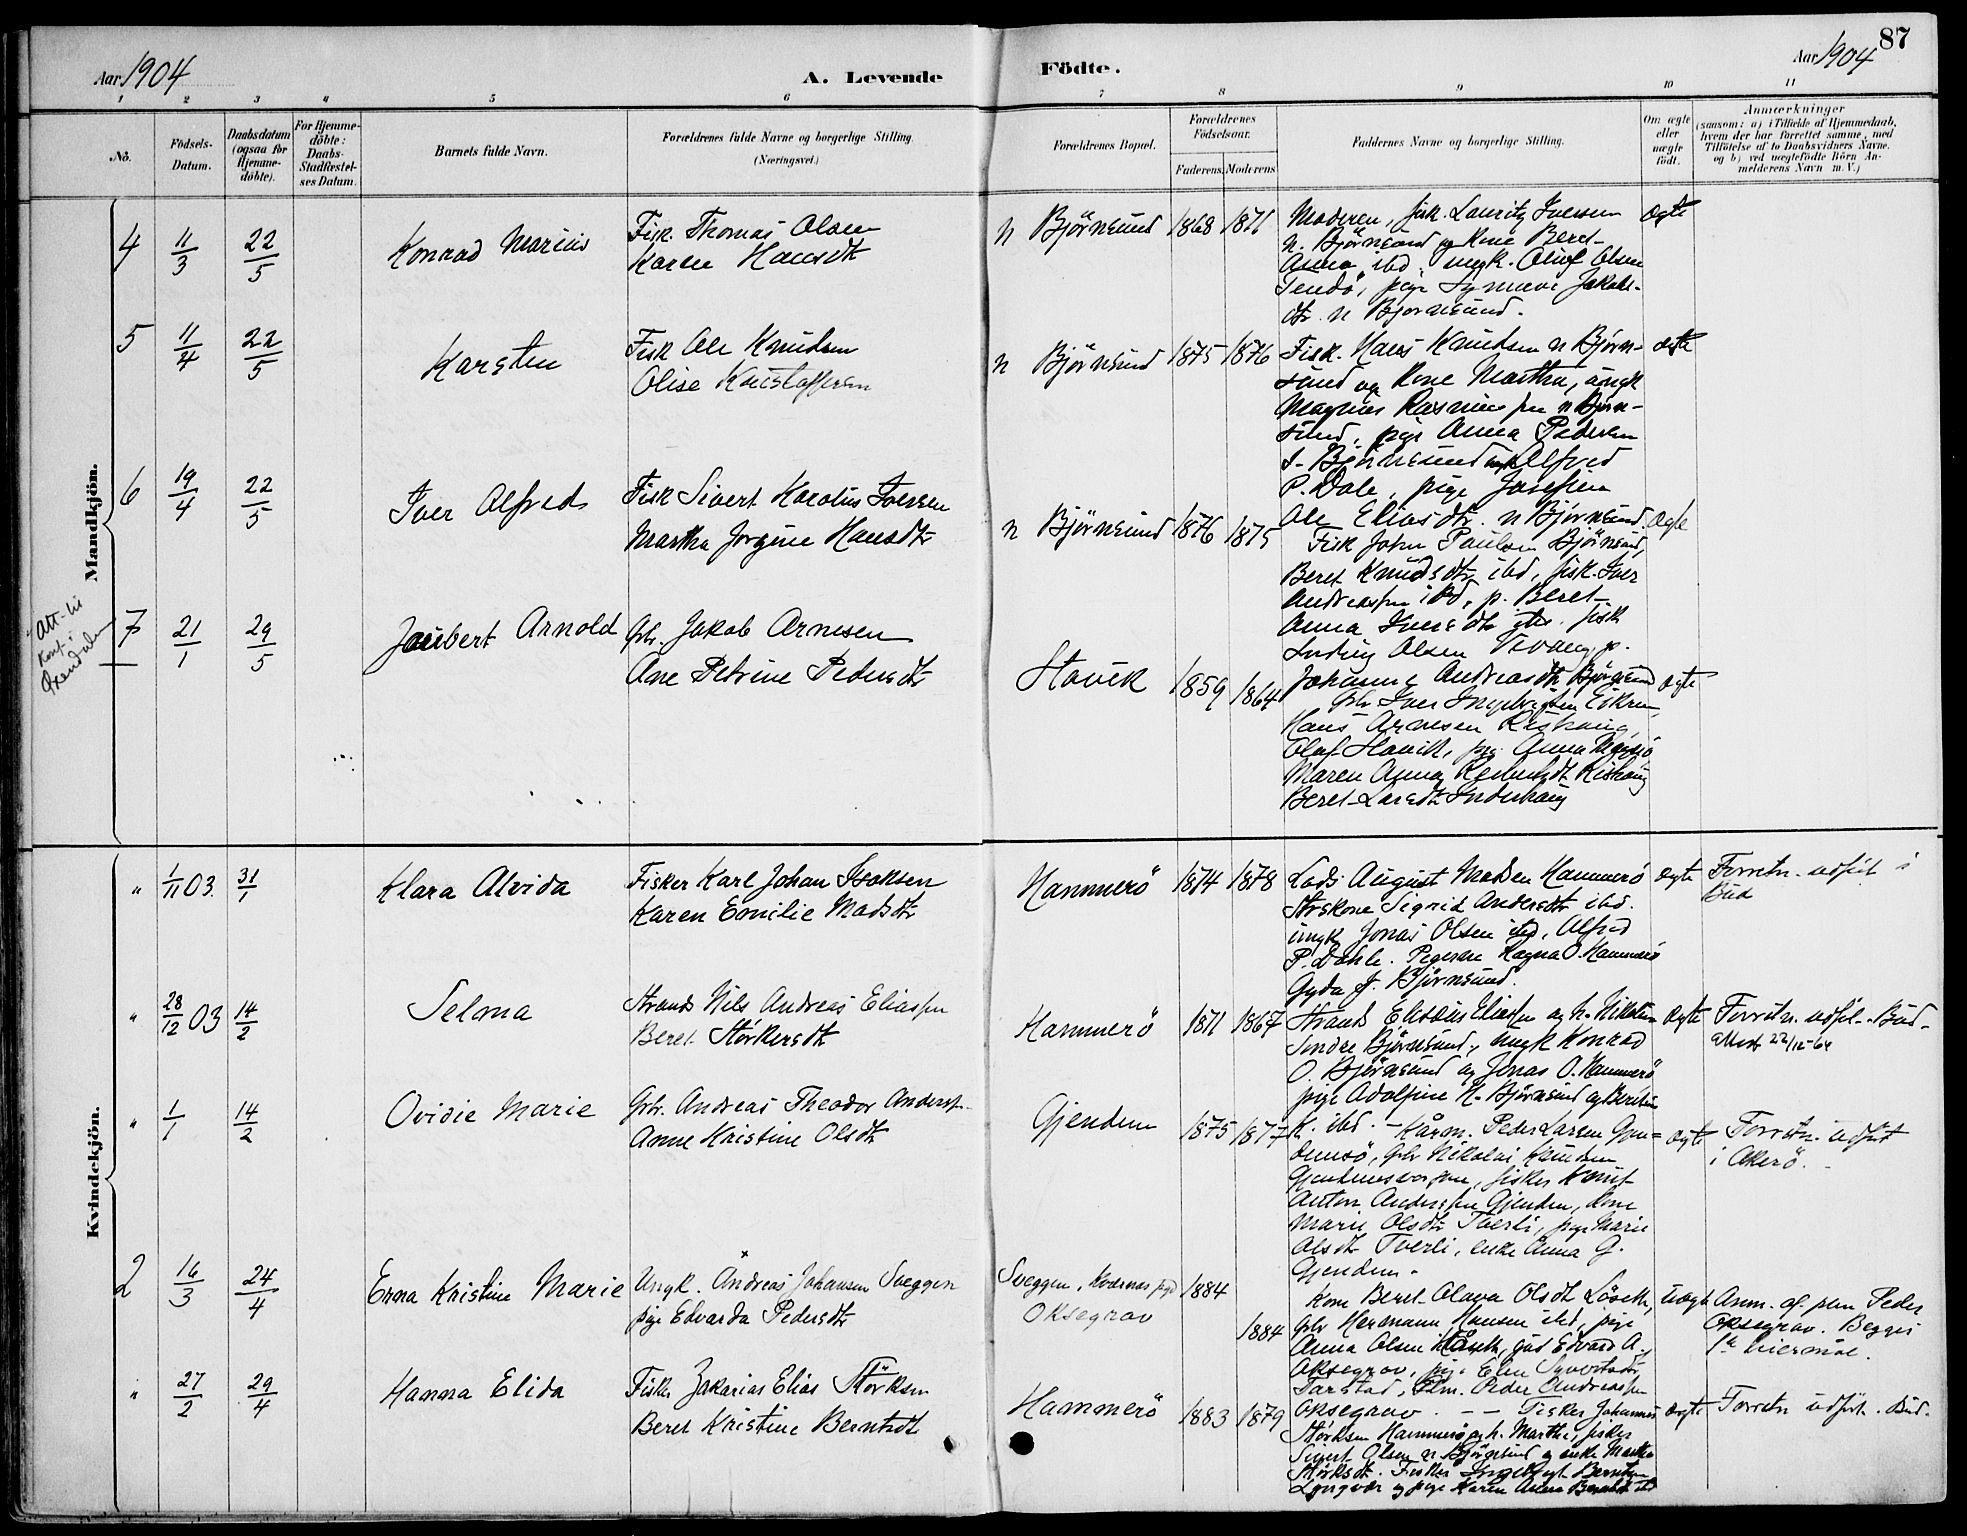 87
Aar 1904
A. Levende
Födte.
Aar 1904
1 2 3 4 5 6 7 8 9 10 11
No.
Födsels-
Datum.
Daabsdatum
(ogsaa for
Hjemme-
döbte).
For Hjemme-
döbte:
Daabs-
Stadfæstel-
ses Datum.
Barnets fulde Navn.
Forældrenes fulde Navne og borgerlige Stilling.
(Næringsvei.)
Forældrenes Bopæl.
Forældrenes
Födselsaar.
Faderens. Moderens
Faddernes Navne og borgerlige Stilling.
Om ægte
eller
uægte
födt.
Anmærkninger
(saasom: a) i Tilfælde af Hjemmedaab,
hvem der har forrettet samme, med
Tilföielse af to Daabsvidners Navne,
og b) ved uægtefödte Börn An-
melderens Navn m. V.)
Mandkjön.
4 11/3 22/5 Konrad Marius
Fisk. Thomas Olsen
Karen Hansdtr
n Björnsund 1868 1871
Moderen, fisk. Lauritz Iversen
n. Björnsund og Kone Beret-
Anna ibd, ungk. Oluf Olsen
pige Synneve Jakobs-
dtr. n Björnsund.
ægte
5 11/4 22/5 Karsten
Fisk Ole Knudsen
Olise Kristoffersen
n Björnsund 1875 1876
Fisk. Hans Knudsen n Björn-
sund og Kone Martha, ungk
Magnus Rasmussen n Björn-
sund, pige Anna Pedersen
s. Björnsund ungk Alfred
P. Dale, pige Josefine
Ole Eliasdtr. n Björnsund.
ægte
6 19/4 22/5 Iver Alfred
Fisk Sivert Karolius Iversen
Martha Jorgine Hansdtr
n Björnsund 1876 1875
Fisk John Paulsen Björnsund,
Beret Knudsdtr ibd, fisk. Iver
Andreassen ibd, p. Beret-
Anna Iversdtr fisk
Ludvig Olsen p.
Johanna Andreasdtr Björnsund
Ægte
Att. til
Konf. i
7 21/1 29/5 Joubert Arnold
Gbr. Jakob Arnesen
Ane Petrine Pedersdtr
Havik 1859 1864
Gbr Iver Ingebrigtsen Eikrem,
Hans Arnesen
Oluf Havik, pig. Anna
Maren Anna
Beret Larsdtr Inderhaug
ægte
Kvindekjön.
" 1/11 03. 31/1 Klara Alvida
Fisker Karl Johan Isaksen
Karen Emilie Madsdtr
Hammerö 1874 1878
Lods August Madsen Hammerö
Sigrid Andersdtr ibd.
ungk Jonas Olsen ibd, Alfred
P. Dahle. Pigerne Ragna O. Hammerö
Gyda Björnsund.
ægte
Forretn. udfört i
Bud
" 28/12 03 14/2 Selma
Strands Nils Andreas Eliassen
Beret Störkersdtr
Hammerö 1871 1867
Strands Eliassen og h.
Söndre Björnsund, ungk Konrad
O. Björnsund og Jonas O. Hammerö
pige Adolfine N. Björnsund og
K. ibd. -
Ægte
Forretn. udfört. Bud-
Attest 22/12-64
" 1/1 14/2 Ovidie Marie
Gbr. Andreas Theodor Anders.
Anne Kristine Olsdtr
Gjendem 1875 1877
Kårm. Peder Larsen
Gbr Nikolai Knudsen
fisker Knut
Anton Anderssen Gjendem, Kone
Marie Olsdtr Tverli, pige Marie
Olsdtr Tverli, enke Anna G.
Gjendem.
ægte
Forretn. udfört
i Akerö.
2 16/3 24/4 Erna Kristine Marie
Ungk. Andreas Johansen Sveggen
pige Edvarda Pedersdtr
Sveggen, Kværnes pgd
Oksegrav
1884
1884
Kone Beret Olava Olsdtr Löseth,
Gbr Hermann Hansen ibd, pige
Anna Olsen Edvard A.
Oksegrav, pige Elen
Peder Andreassen
Oksegrav.
uægte
Anm. af Peder
Oksegrav. Begges
1ste Leiermål.
" 27/2 29/4 Hanna Elida
Fisker Zakarias Elias Störksen
Beret Kristine Berntsdtr
Hammerö 1883 1879
Fisker Johannes
Störksen Hammerö og h. Martha, fisker
Sivert Olsen n. Björnsund og enke Martha
Störksdtr. Fisker Ingebrigt Berntsen
og pige Karen Anna ibd
ægte
Forretn udfört. Bud.